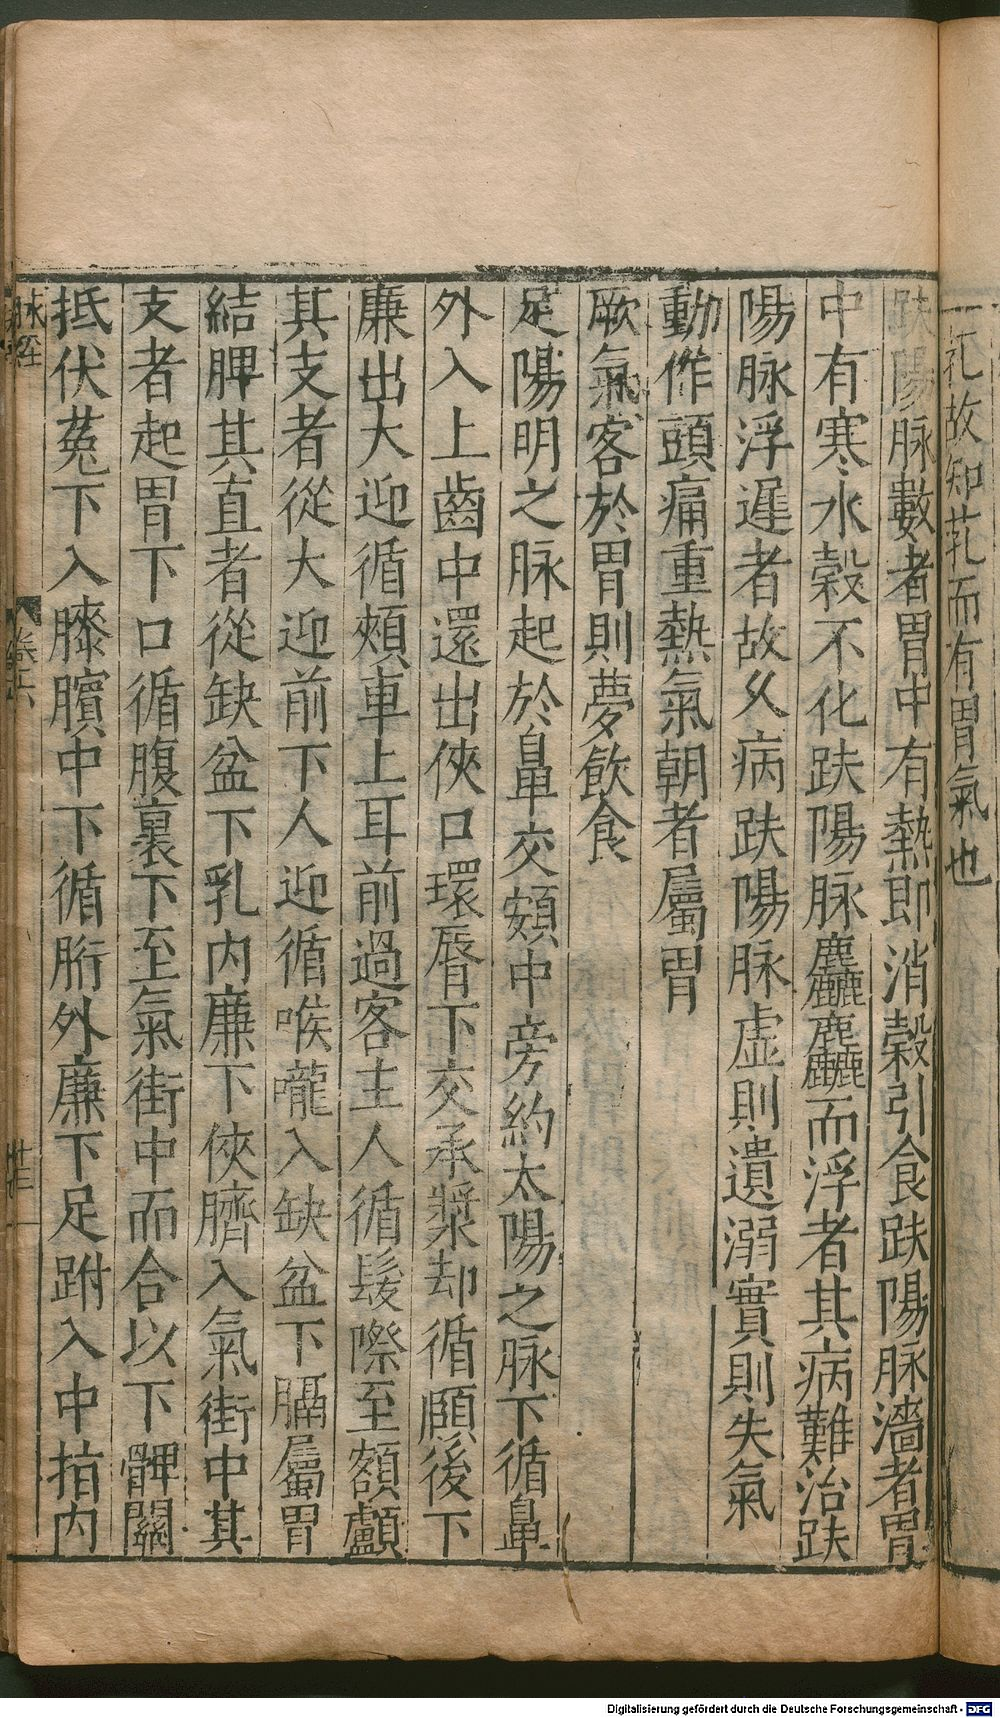 芤故知芤而有胃氣也
趺陽脉數者胃中有熱即消穀引食趺陽脉濇者胃
中有寒水穀不化趺陽脉麤麤而浮者其病難治趺
陽脉浮遲者故久病趺陽脉虛則遺溺實則失氣
動作頭痛重熱氣朝者屬胃
厥氣客於胃則夢飲食
足陽明之脉起於鼻交頞中旁約太陽之脉下循鼻
外入上齒中還出俠口環脣下交承漿却循頤後下
廉出大迎循頰車上耳前過客主人循髮際至額顱
其支者從大迎前下人迎循喉嚨入缺盆下膈屬胃
結脾其直者從缺盆下乳内廉下俠臍入氣街中其
支者起胃下口循腹裏下至氣街中而合以下髀關
抵伏菟下入膝臏中下循胻外廉下足跗入中指内
脉經
卷六
廿三
Digitalisierung gefördert durch die Deutsche Forschungsgemeinschaft - DFG